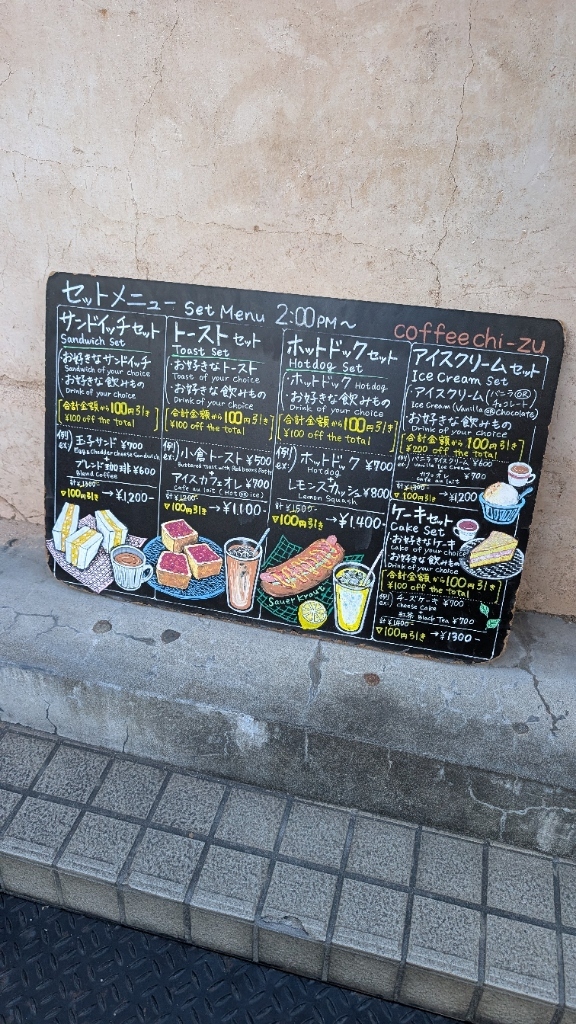 セットメニュー Set Menu 2:00PM〜
coffee chi-zu
サンドイッチセット
Sandwich Set
・お好きなサンドイッチ
Sandwich of your choice
・お好きな飲みもの
Drink of your choice
合計金額から100円引き
¥100 off the total
例)
ex)
玉子サンド ¥700
Egg & Cheddar cheese Sandwich
+
ブレンド珈琲 ¥600
Blend Coffee
計 ¥1300-
▽100円引き →¥1200-
トーストセット
Toast Set
・お好きなトースト
Toast of your choice
・お好きな飲みもの
Drink of your choice
合計金額から100円引き
¥100 off the total
例)
ex)
小倉トースト ¥500
+
アイスカフェオレ ¥700
Cafe au lait (Hot OR ice)
計 ¥1200-
▽100円引き →¥1100-
ホットドックセット
Hotdog Set
・ホットドック Hotdog
・お好きな飲みもの
Drink of your choice
合計金額から100円引き
¥100 off the total
例)
ex)
ホットドック ¥700
Hotdog
+
レモンスカッシュ ¥800
Lemon Squash
計 ¥1500-
▽100円引き →¥1400-
Sauer Kraut
アイスクリームセット
Ice Cream Set
・アイスクリーム(バニラ OR チョコレート)
Ice Cream (Vanilla OR Chocolate)
・お好きな飲みもの
Drink of your choice
合計金額から100円引き
¥200 off the total
例)
ex)
バニラアイスクリーム ¥600
Vanilla Ice Cream
カフェオレ
Cafe au lait ¥700
計 ¥1300-
▽100円引き →¥1200
ケーキセット
Cake Set
・お好きなケーキ
Cake of your choice
・お好きな飲みもの
Drink of your choice
合計金額から100円引き
¥100 off the total
例)
ex)
チーズケーキ ¥700
Cheese Cake
紅茶 Black Tea ¥700
計 ¥1400-
▽100円引き →¥1300-